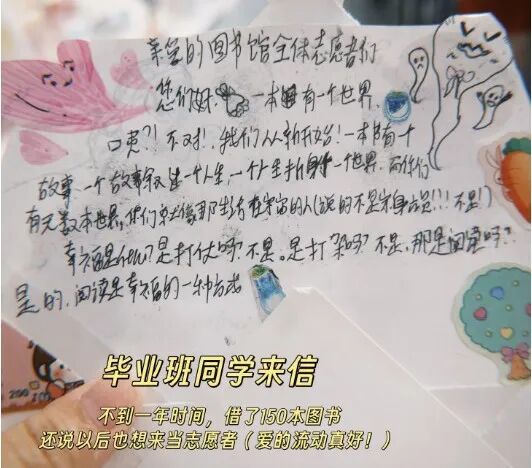 亲爱的图书馆全体志愿者们
您们好. 一本书有一个世界.
口吏?! 不对!. 我们从新开始! 一本书有个
故事 一个故事 是一个人生, 一个人生折射一个世界. 而你们
有无数本世界, 你们就像那生活在宇宙的人(说的不是宇航员!!! 不是!)
幸福是什么? 是打仗吗? 不是. 是打 吗? 不是, 那是阅读吗??
是的. 阅读是幸福的一种方式
毕业班同学来信
不到一年时间，借了150本图书
还说以后也想来当志愿者（爱的流动真好！）
200